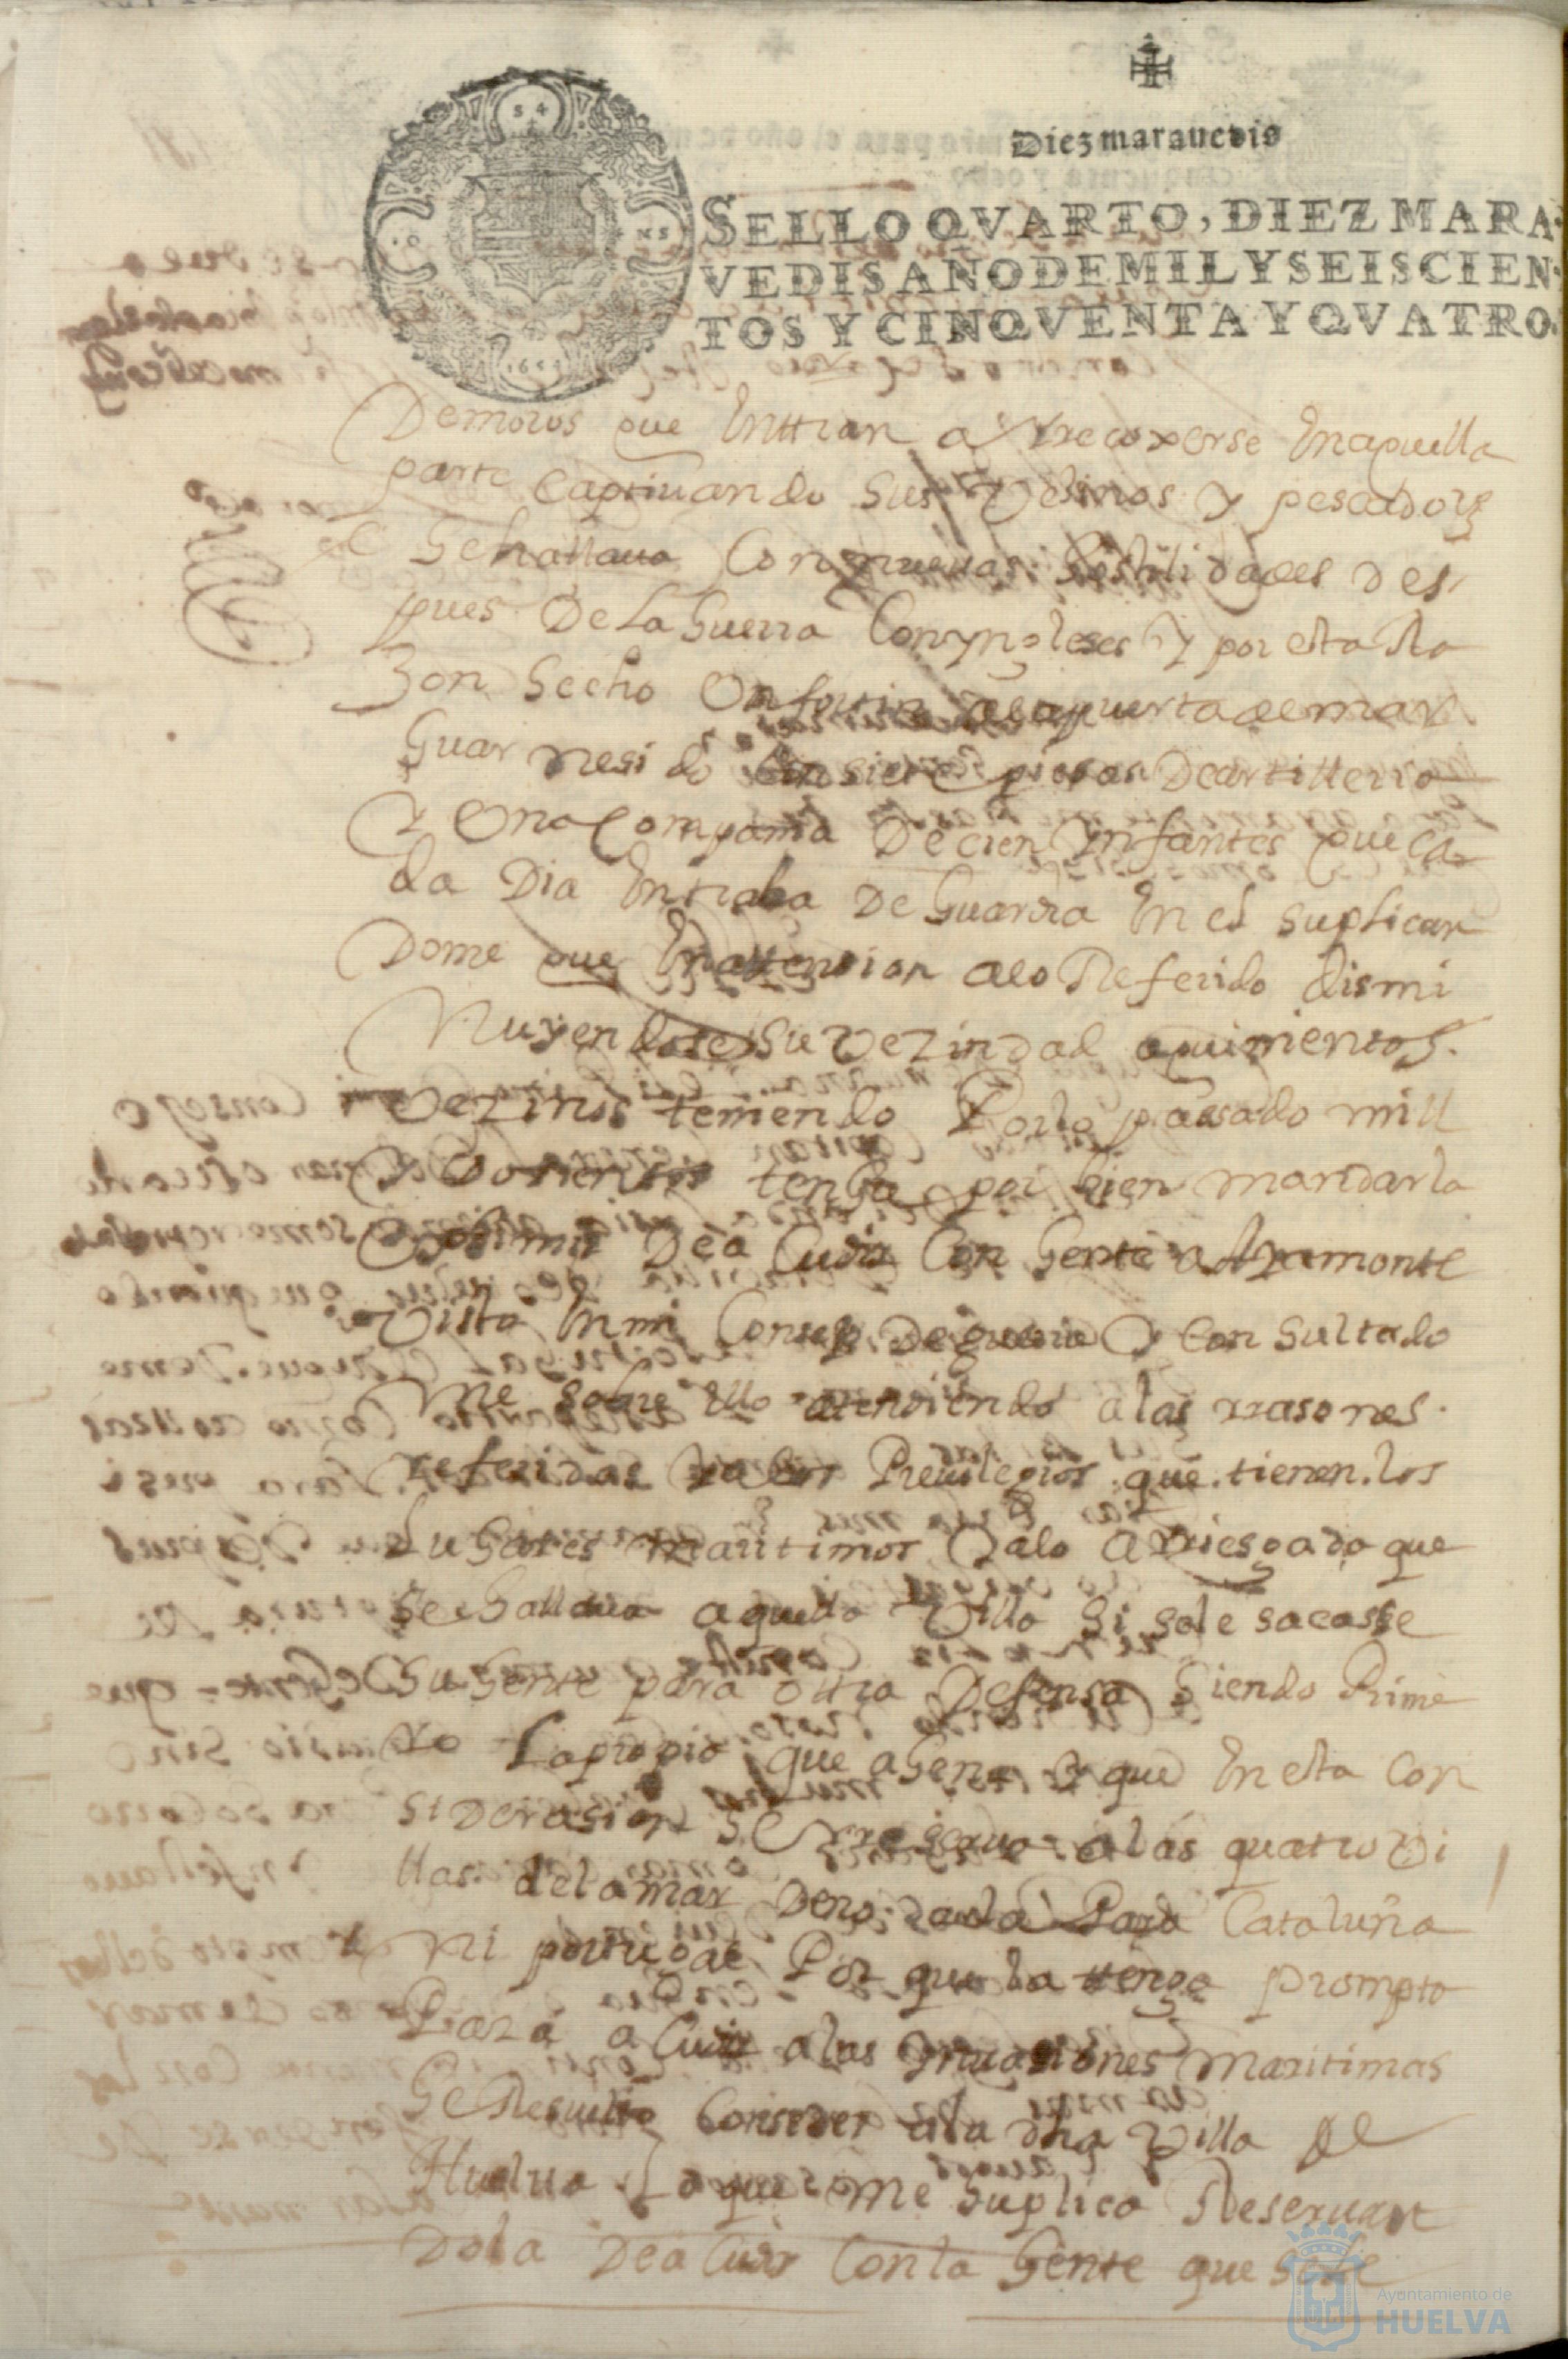 Diez marauedis
SELLO QVARTO, DIEZ MARA-
VEDIS AÑO DE MIL Y SEISCIEN-
TOS Y CINQVENTA Y QVATRO.
Demoros que Enttran a rrecoxerse Enaquella
parte Captiuando Sus Vesinos y pesadores
Se hallaua Con nueuas hostilidades des
pues De La Guerra Con yngleses y por esta Ra
zon hecho Vn fortin a la puerta de mar
Guar nesido Con siete piesas De artilleria
y Vna Compania De cien ynfantes que ca
da Dia Entraba De Guardia En el suplican
dome que En attension a lo Referido dismi
Nuyendose Su Vezindad a quinientos
Vezinos teniendo Por lo passado mill
y Dosientos tenga por bien mandarla
eximir De a Cudir Con Gente a Ayamonte
Vista En mi Consejo De guerra y Con sultado
me sobre Ello atendiendo a las rrasones
referidas ya los Preuilegios que tienen los
Lugares maritimos y a lo arriesgado que
Se hallaua aquella Villa Si se le sacasse
Su Gente para ottra Defensa Siendo Prime
ro Lo propio que a Geno y que En esta con
siderasion Se rreserua a las quatro Vi
llas de la mar De no darla Para Cataluña
ni portugal Por que la tenga prompta
Para a Cudir a las ynuasiones Maritimas
Se Resuelto Conseder a la dha Villa de
Huelua Lo que me suplica Reseruan
dola De a Cudir Con la Gente que se le
Ayuntamiento de
HUELVA